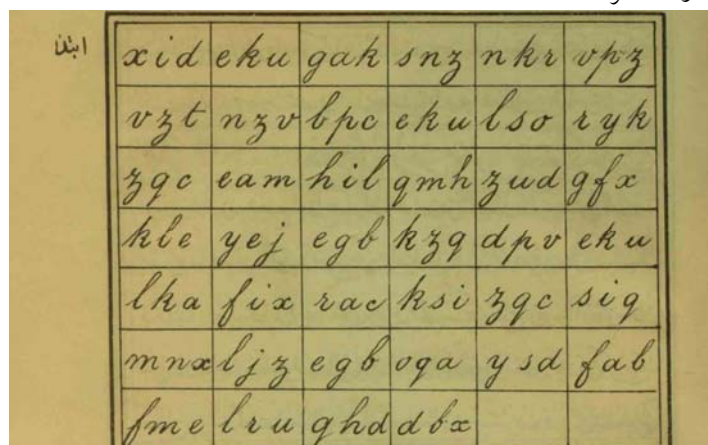 ابتدا
xid eku gak snz nkr vpz
vzt nzv bpc eku lso ryk
zqc eam hil qmh zud gfx
kle yej egb kzq dpv eku
lka fix rac ksi zqc siq
mnx ljz egb oqa ysd fab
fme lru ghd dbx